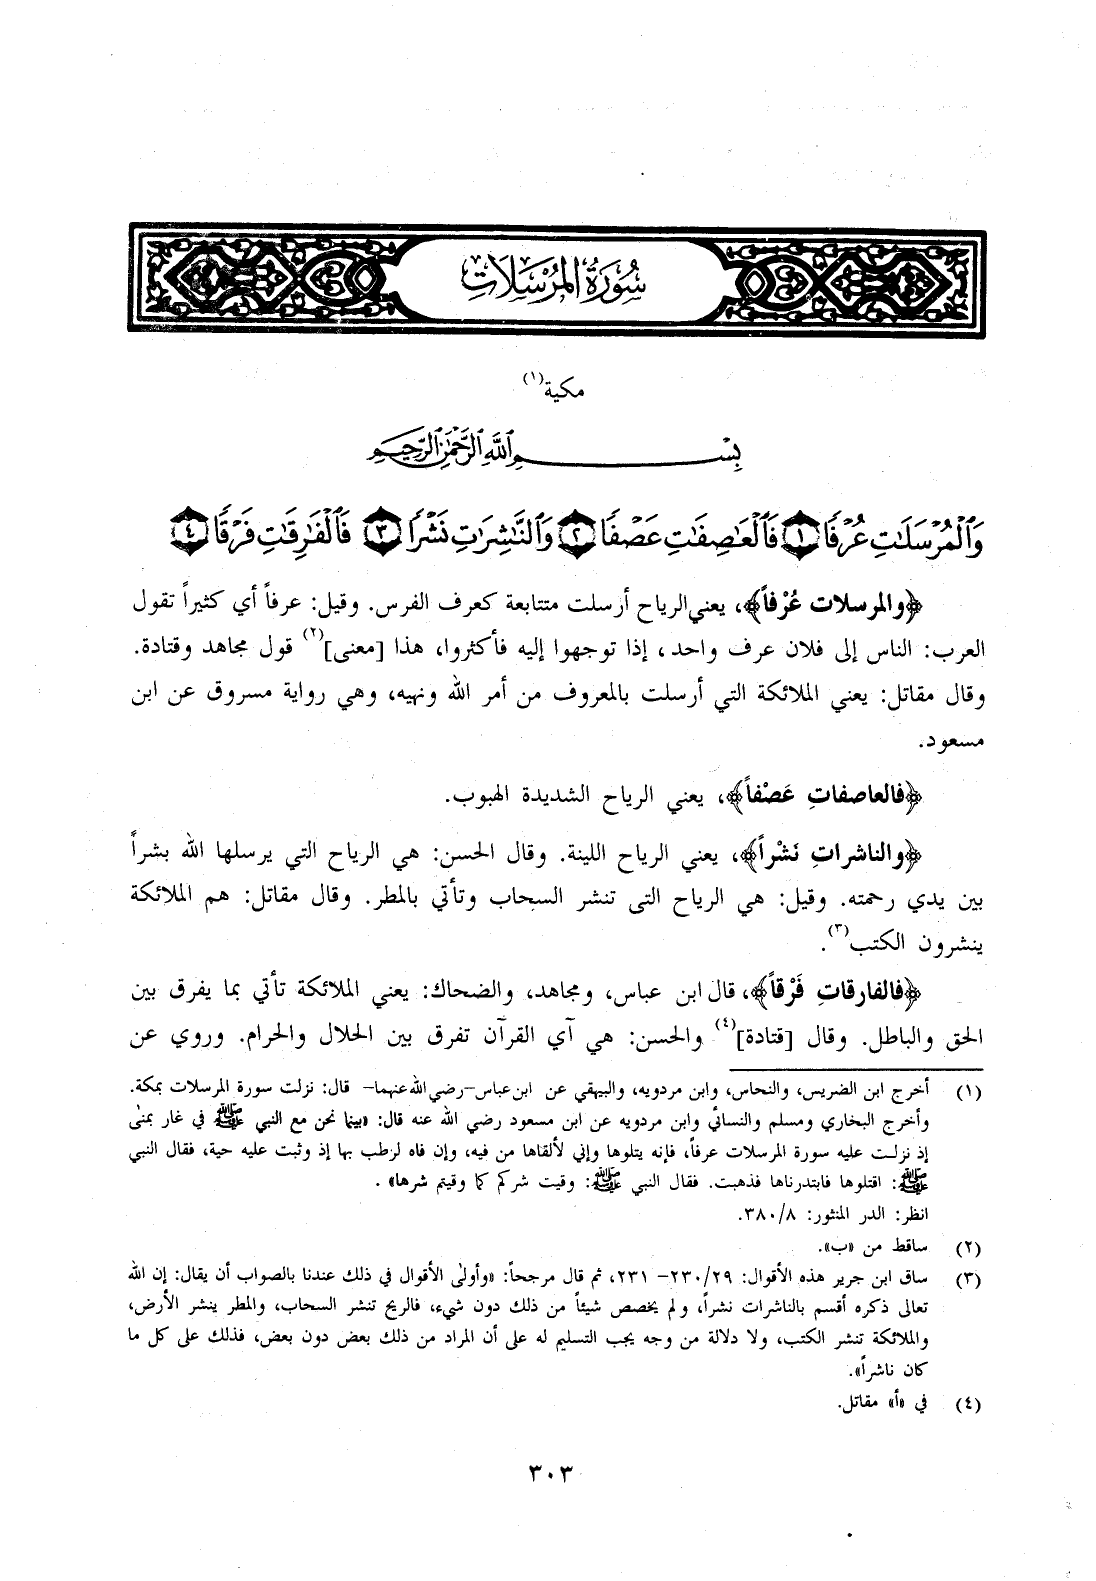 سُورَةُ المُرْسَلَاتِ
مكية(١)
بِسْمِ اللَّهِ الرَّحْمَٰنِ الرَّحِيمِ
وَٱلْمُرْسَلَٰتِ عُرْفًا ١ فَٱلْعَٰصِفَٰتِ عَصْفًا ٢ وَٱلنَّٰشِرَٰتِ نَشْرًا ٣ فَٱلْفَٰرِقَٰتِ فَرْقًا ٤
﴿والمرسلات عُرْفاً﴾، يعني الرياح أرسلت متتابعة كعرف الفرس. وقيل: عرفاً أي كثيراً تقول
العرب: الناس إلى فلان عرف واحد، إذا توجهوا إليه فأكثروا، هذا [معنى](٢) قول مجاهد وقتادة.
وقال مقاتل: يعني الملائكة التي أرسلت بالمعروف من أمر الله ونهيه، وهي رواية مسروق عن ابن
مسعود.
﴿فالعاصفاتِ عَصْفاً﴾، يعني الرياح الشديدة الهبوب.
﴿والناشراتِ نَشْراً﴾، يعني الرياح اللينة. وقال الحسن: هي الرياح التي يرسلها الله بشراً
بين يدي رحمته. وقيل: هي الرياح التى تنشر السحاب وتأتي بالمطر. وقال مقاتل: هم الملائكة
ينشرون الكتب(٣).
﴿فالفارقاتِ فَرْقاً﴾، قال ابن عباس، ومجاهد، والضحاك: يعني الملائكة تأتي بما يفرق بين
الحق والباطل. وقال [قتادة](٤) والحسن: هي آي القرآن تفرق بين الحلال والحرام. وروي عن
(١) أخرج ابن الضريس، والنحاس، وابن مردويه، والبيهقي عن ابن عباس -رضي الله عنهما- قال: نزلت سورة المرسلات بمكة.
وأخرج البخاري ومسلم والنسائي وابن مردويه عن ابن مسعود رضي الله عنه قال: «بينما نحن مع النبي ﷺ في غار بمنى
إذ نزلت عليه سورة المرسلات عرفاً، فإنه يتلوها وإني لألقاها من فيه، وإن فاه لرطب بها إذ وثبت عليه حية، فقال النبي
ﷺ: اقتلوها فابتدرناها فذهبت. فقال النبي ﷺ: وقيت شركم كما وقيتم شرها» .
انظر: الدر المنثور: ٣٨٠/٨.
(٢) ساقط من «ب».
(٣) ساق ابن جرير هذه الأقوال: ٢٣٠/٢٩- ٢٣١، ثم قال مرجحاً: «وأولى الأقوال في ذلك عندنا بالصواب أن يقال: إن الله
تعالى ذكره أقسم بالناشرات نشراً، ولم يخصص شيئاً من ذلك دون شيء، فالريح تنشر السحاب، والمطر ينشر الأرض،
والملائكة تنشر الكتب، ولا دلالة من وجه يجب التسليم له على أن المراد من ذلك بعض دون بعض، فذلك على كل ما
كان ناشراً».
(٤) في «أ» مقاتل.
٣٠٣